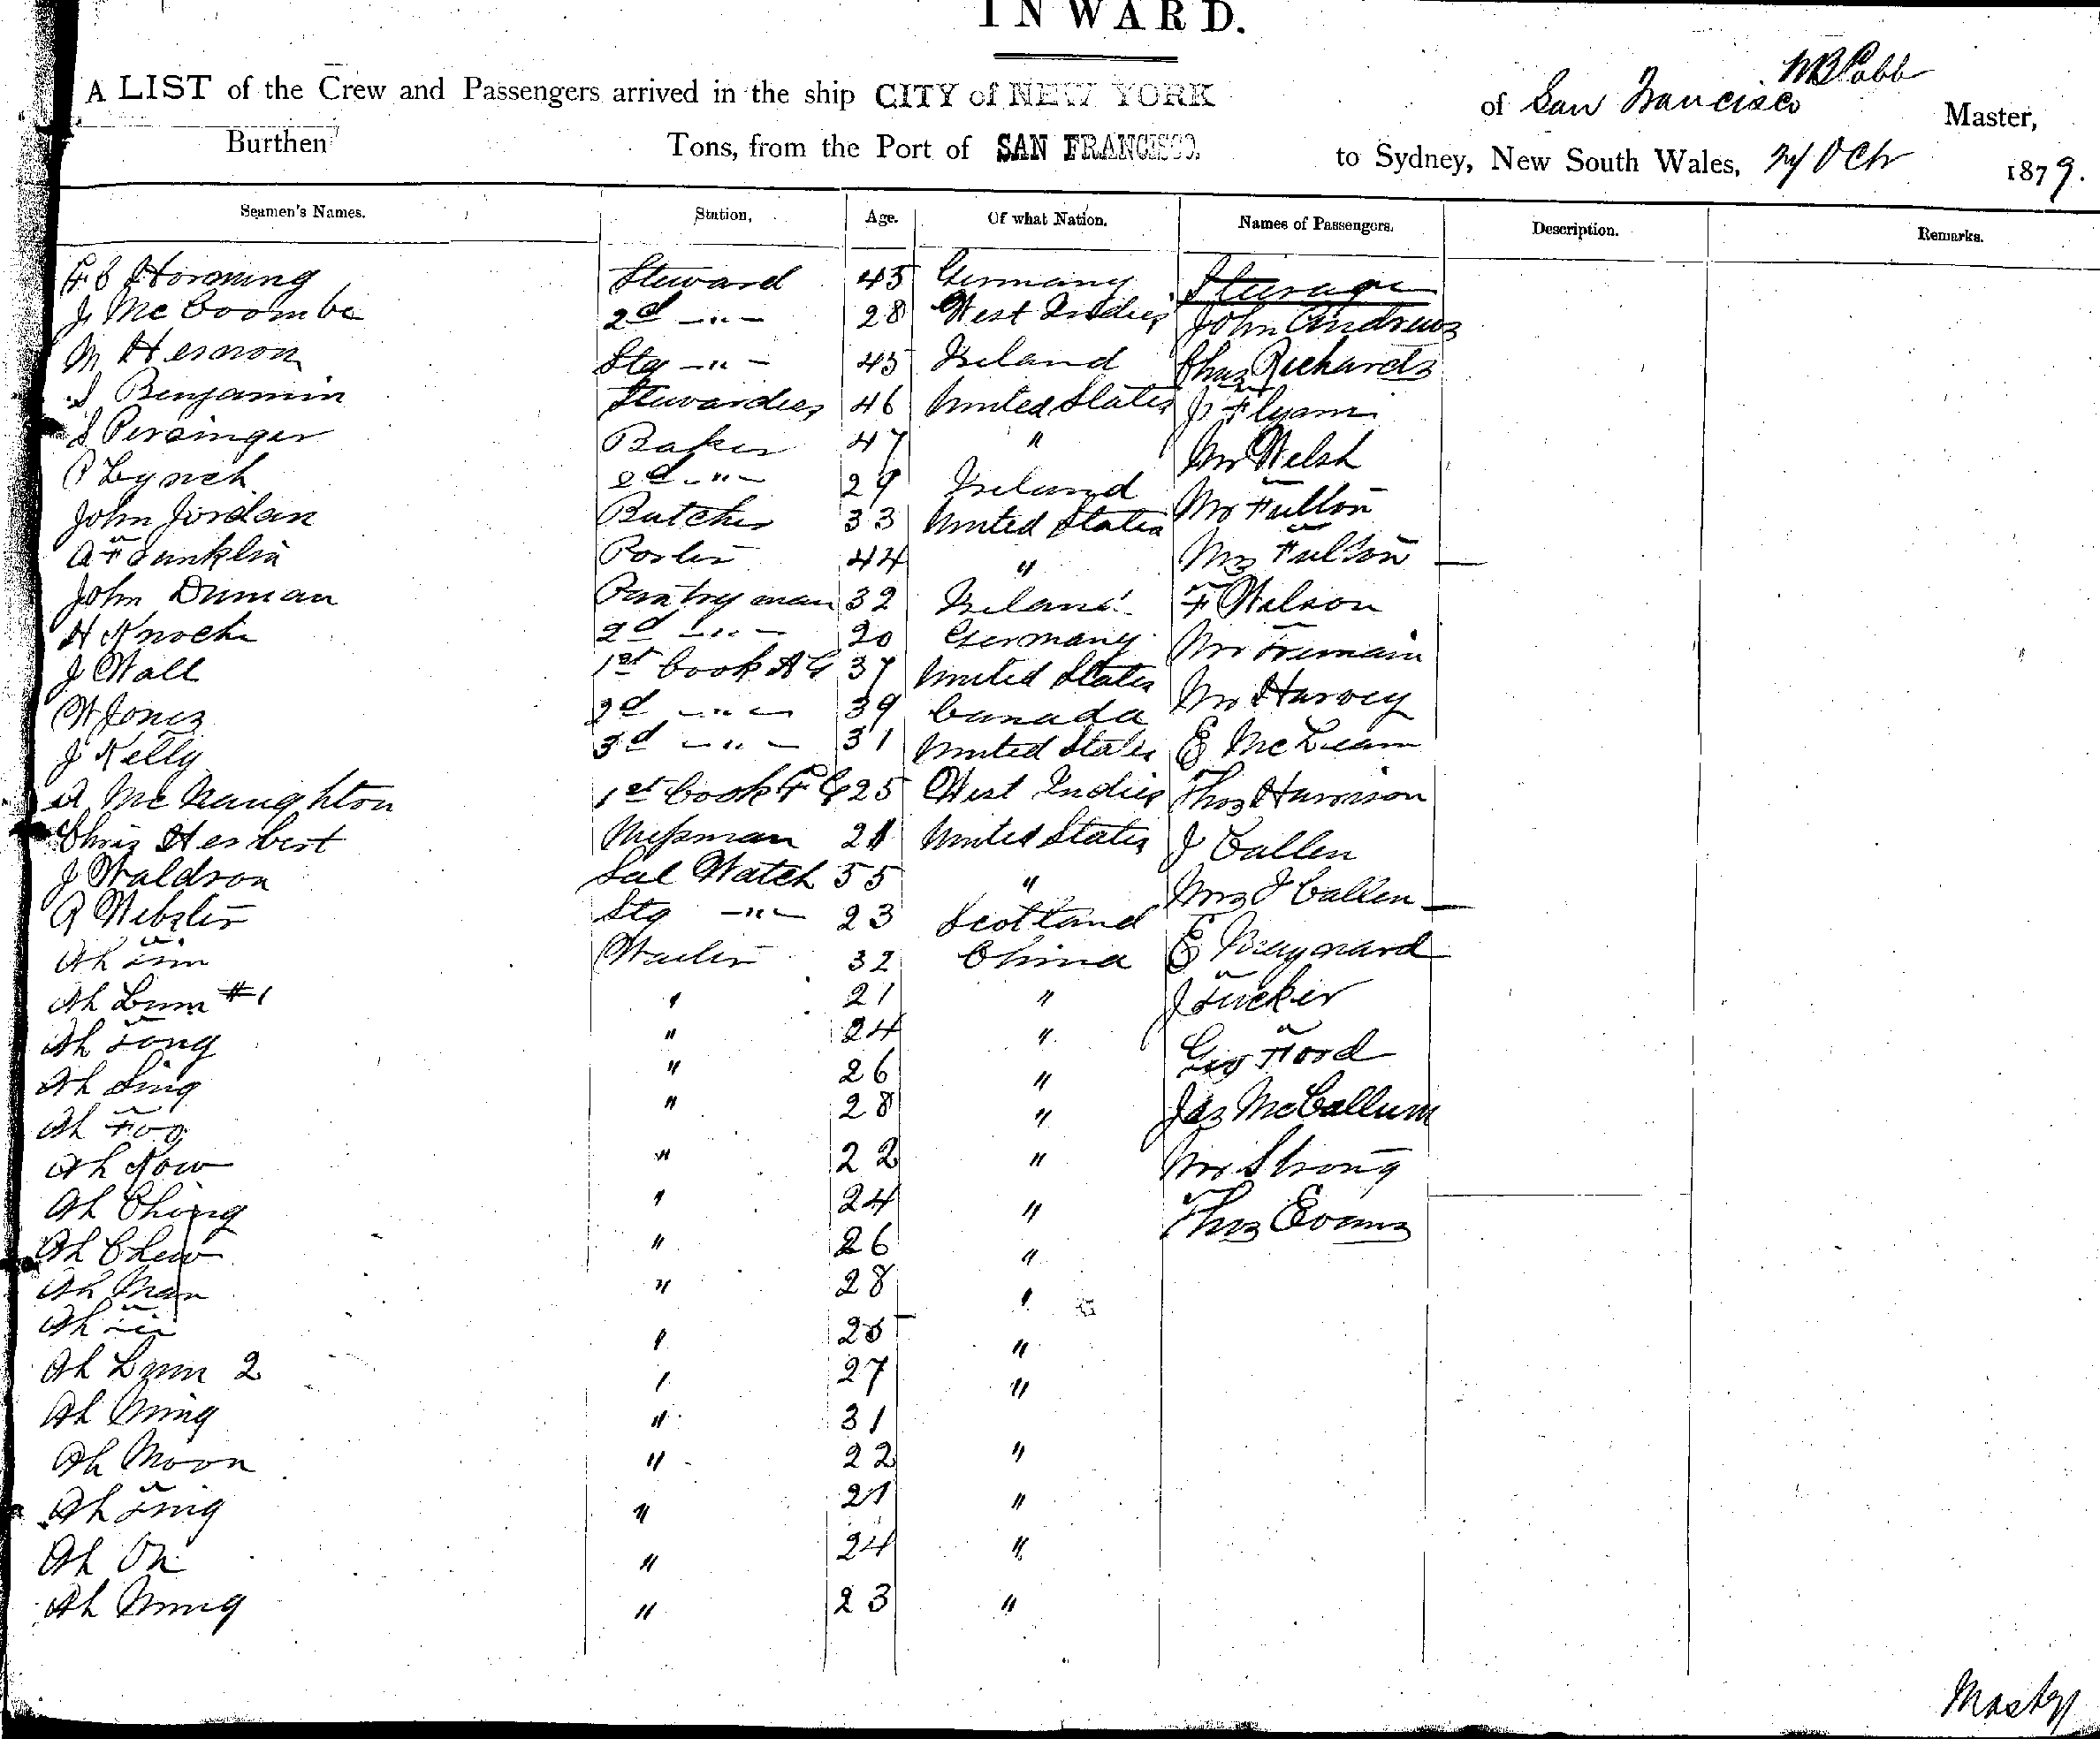 INWARD.
W B Cobb
A LIST of the Crew and Passengers arrived in the ship CITY of NEW YORK of San Francisco Master,
Burthen Tons, from the Port of SAN FRANCISCO. to Sydney, New South Wales, Oct 1879.
Seamen's Names. Station, Age. Of what Nation. Names of Passengers. Description. Remarks.
Horning Steward 45 Germany Steerage
J McCoombe 2d -"- 28 West Indies John Andrews
M Hernon Stg -"- 45 Ireland Chas Richards
S Benjamin Stewardess 46 United States J
S Persinger Baker 47 " Mr Welsh
P Lynch 2d -"- 29 Ireland Mr Fulton
John Jordan Butcher 33 United States Mrs Fulton
A Franklin Porter 44 " F Wilson
John Duman Pantryman 32 Ireland Mr Tremain
H Knoch 2d -"- 20 Germany Mr Harvey
J Wall 1st Cook A G 37 United States E McLean
W Jones 2d -"- 39 Canada Thos Harrison
J Kelly 3d -"- 31 United States J Callen
A McNaughton 1st Cook F G 25 West Indies Mrs J Callen
Chris Herbert Messman 21 United States E Maynard
J Waldron Sal Watch 55 " J Tucker
R Webster Stg -"- 23 Scotland Geo Ford
Ah Waiter 32 China Jas McCallum
Ah Lum #1 " 21 " Mr Strong
Ah Tong " 24 " Thos Evans
Ah Sing " 26 "
Ah Foo " 28 "
Ah Kow " 22 "
Ah Ching " 24 "
Ah Chew " 26 "
Ah Man " 28 "
Ah " 25 "
Ah Lum 2 " 27 "
Ah Ming " 31
Ah Moon " 22 "
Ah " 21 "
Ah On " 24 "
Ah " 23 "
Master